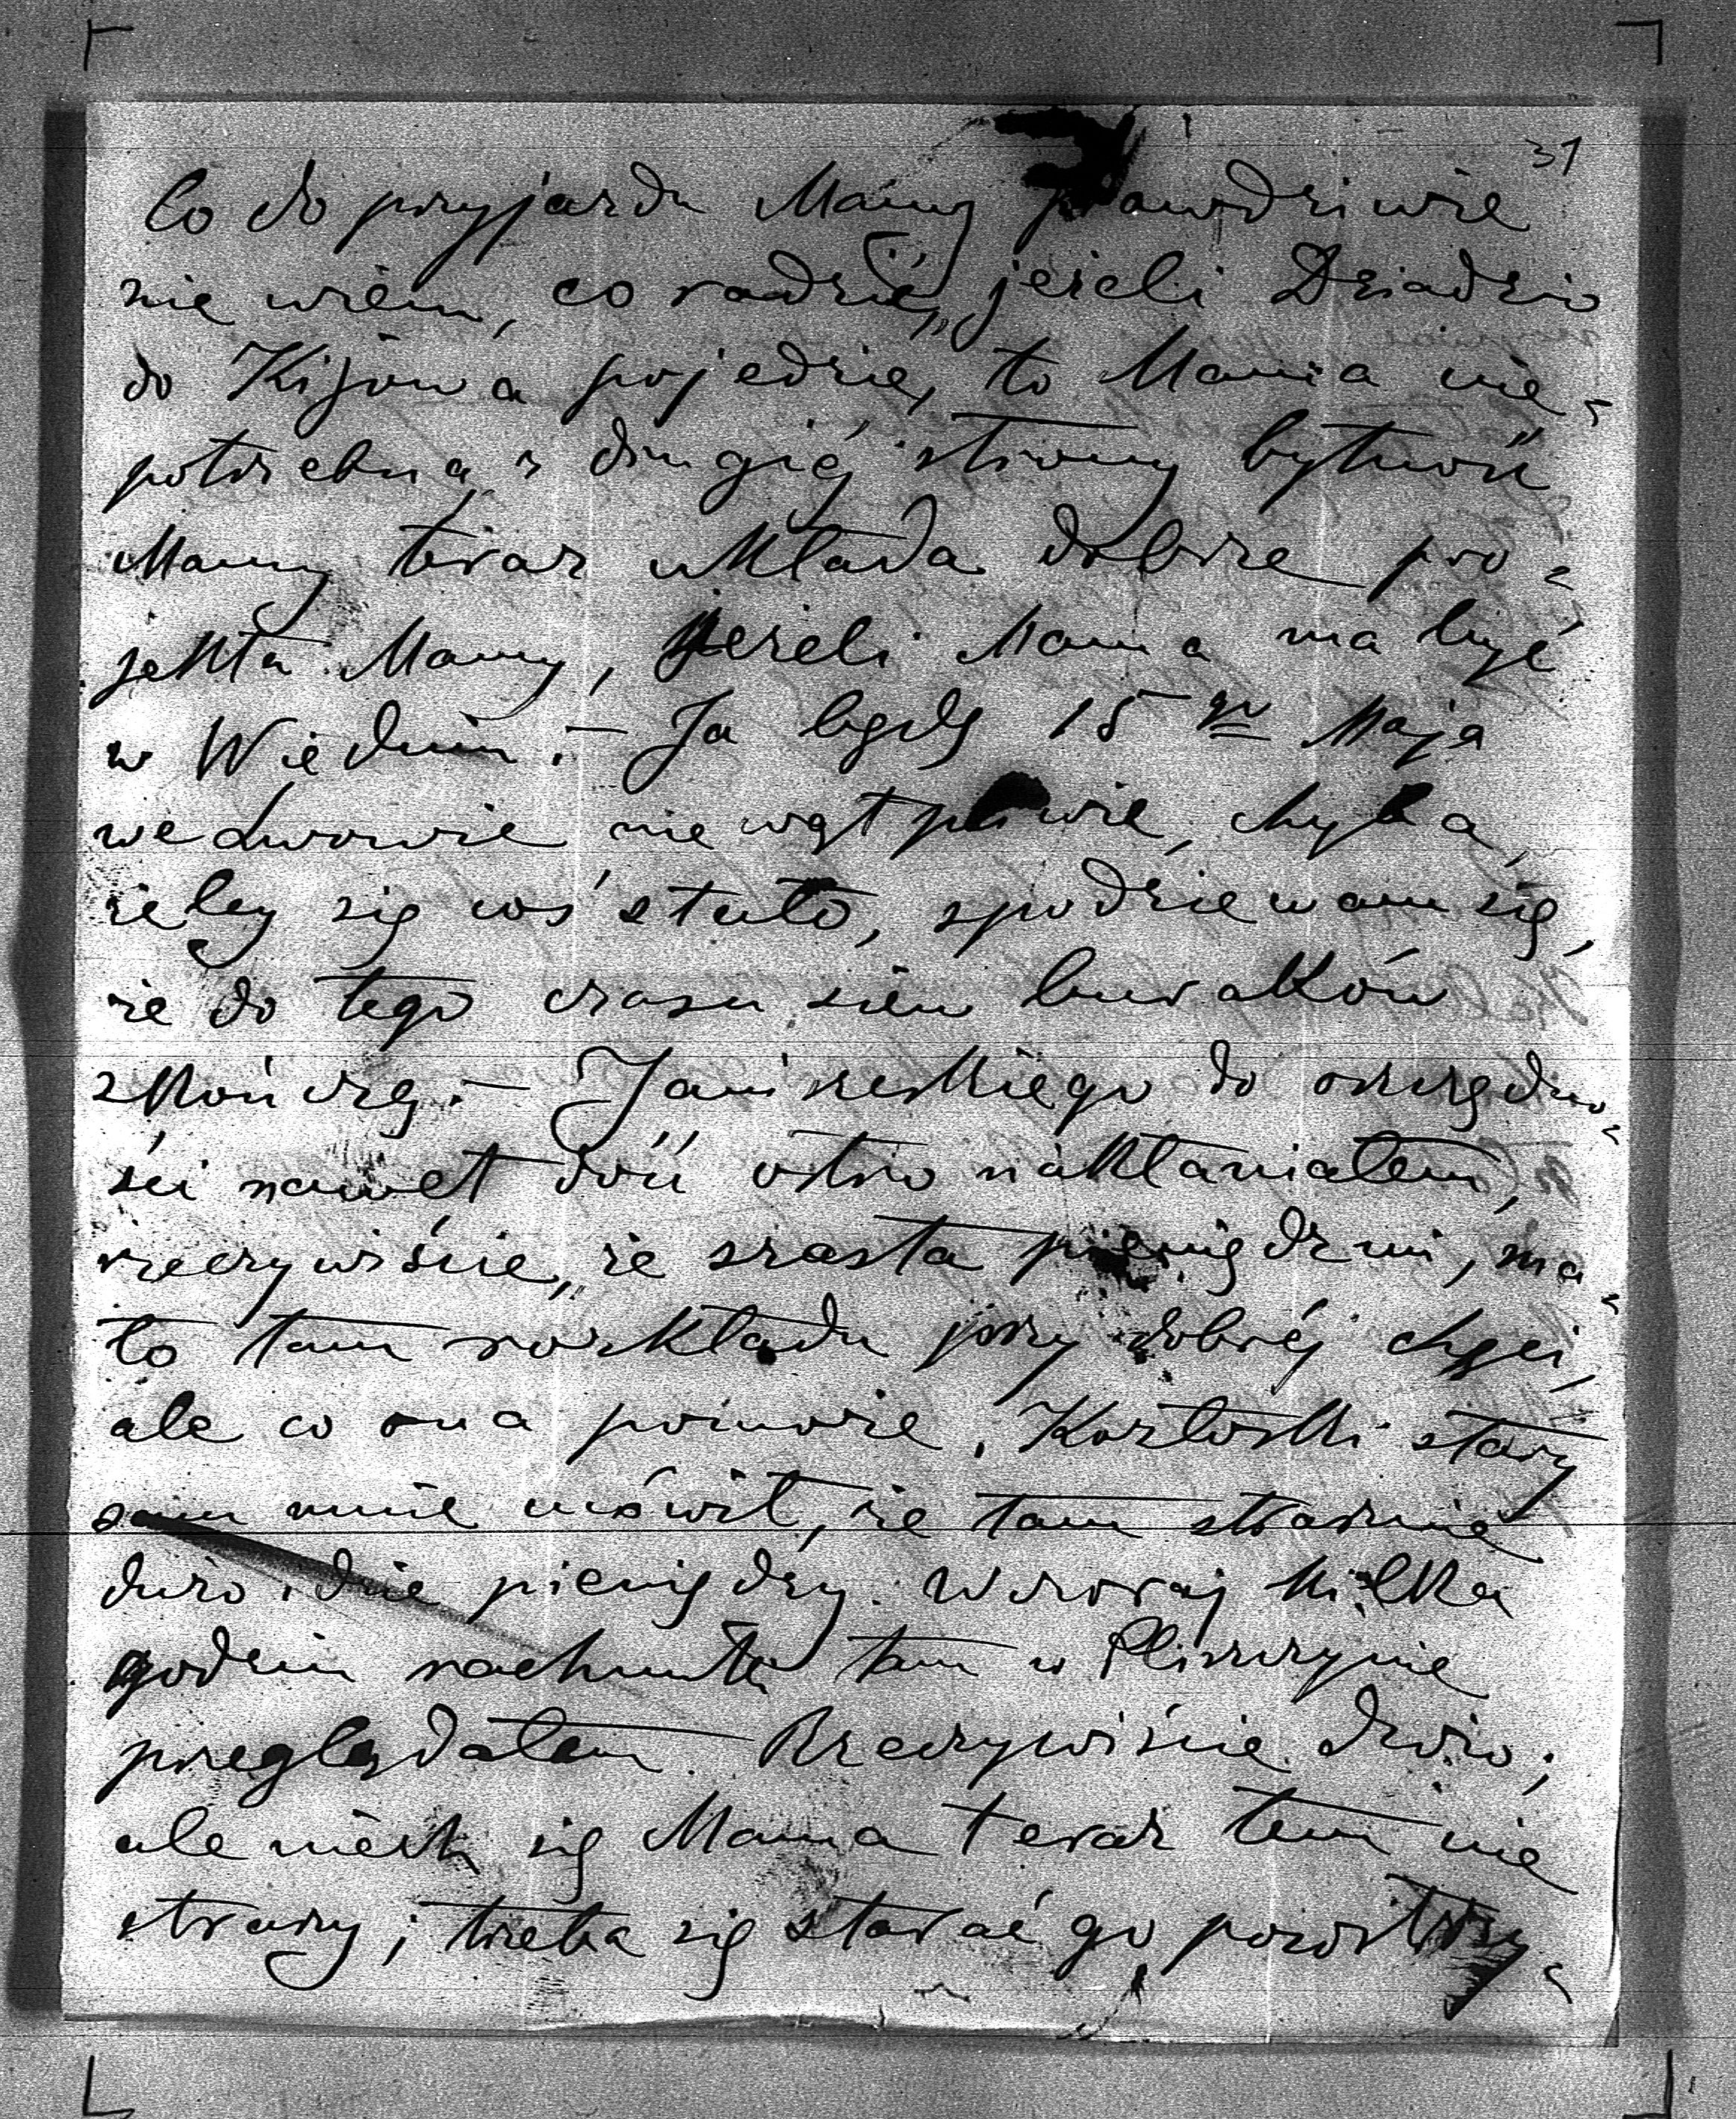 31
Co do przyjazdu Mamy prawdziwie
nie wiem, co radzić, jeżeli Dziadzio
do Kijowa pojedzie, to Mama nie-
potrzebna, z drugiéj strony bytność
Mamy teraz układa dobrze pro-
jekta Mamy, jeżeli Mama ma być
w Wiedniu. – Ja będę 15go Maja
we Lwowie niewątpliwie, chyba,
żeby się coś stało, spodziewam się,
że do tego czasu siew buraków
zkończę. – Janiszeskiego do oszczędno-
ści nawet dość ostro nakłaniałem,
rzeczywiście, że szasta pieniędzmi, ma-
ło tam rozkładu przy dobréj chęci,
ale co ona pomoże. Kozłoski stary
sam mnie mówił, że tam strasznie
dużo idzie pieniędzy. Wczoraj kilka
godzin rachunki tam w Pliszczynie
przeglądałem. Rzeczywiście dużo;
ale niech się Mama teraz tem nie
straszy; trzeba się starać go